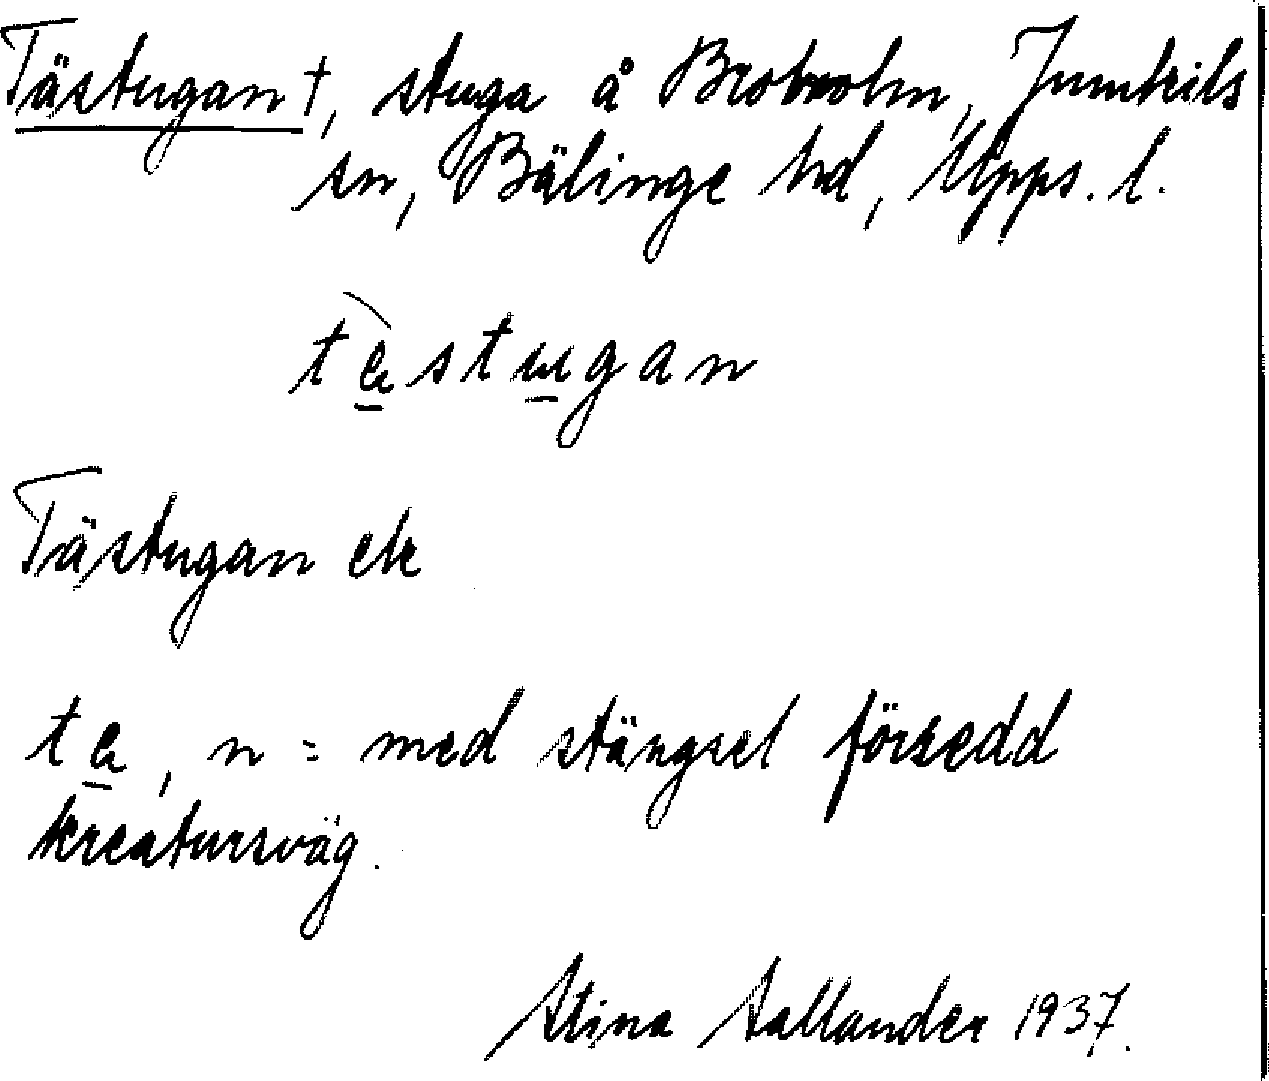 Tästugan †, stuga å Broholm, Jumkils
sn, Bälinge hd, Upps. l.
tästugan
Tästugan ek
tä, n = med stängsel försedd
kreatursväg.
Stina Sallander 1937.